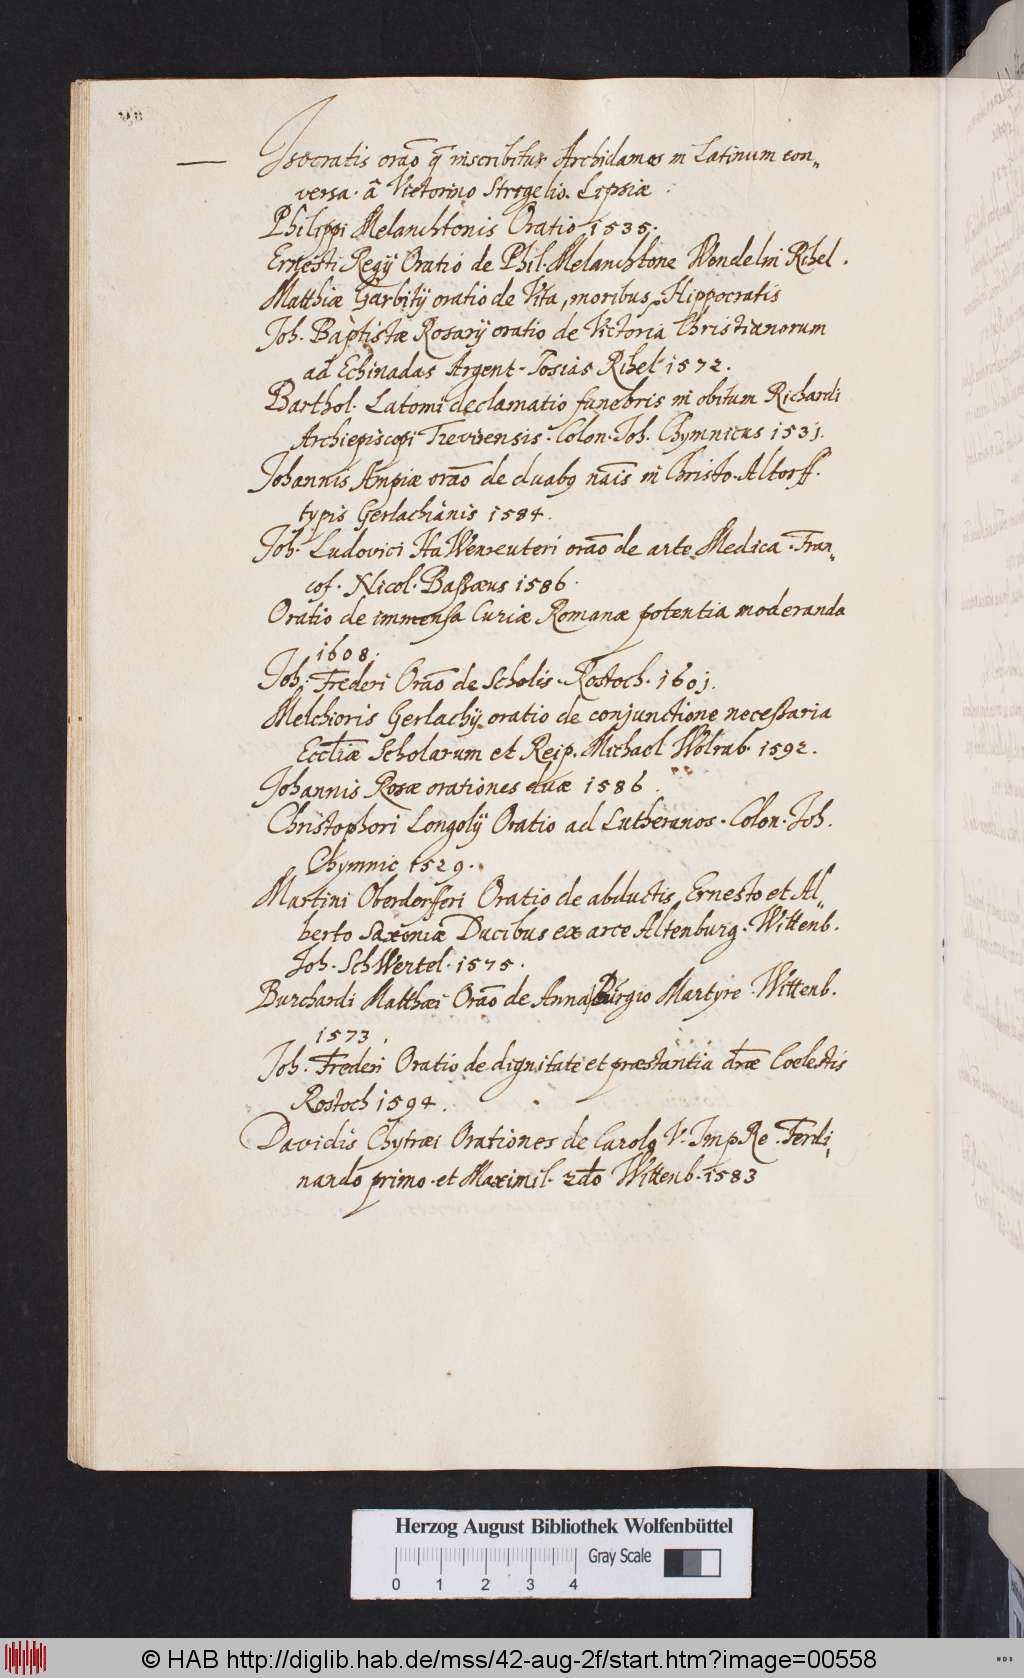 Isocratis orāo q̄ inscribitur Archidamos in Latinum con„
versa. â Victorino Strigelio. Lipsiæ
Philippi Melanchtonis Oratio 1535.
Ernesti Regij Oratio de Phil. Melanchtone Wendelin Rihel.
Matthiæ Garbitij oratio de Vita, moribus, Hippocratis
Joh. Baptistæ Rosarij oratio de Victoria Christianorum
ad Echinadas Argent. Josias Rihel 1572.
Barthol. Latomi declamatio funebris in obitum Richardi
Archiepiscopi Trevirensis. Colon. Joh. Gymnicus 1531.
Johannis Ampiæ orāo de duabꝰ nāis in Christo. Altorff.
typis Gerlachianis 1584.
Joh. Ludovici HaWenreuteri orāo de arte Medica. Fran„
cof. Nicol. Baßæus 1586.
Oratio de immensa Curiæ Romanæ potentia moderanda
1608.
Joh. Frederi Orāo de Scholis. Rostoch. 1601.
Melchioris Gerlachij oratio de conjunctione neceßaria
Eccl̄iæ Scholarum et Reip. Michael Wolrab. 1592.
Johannis Rosæ orationes duæ 1586.
Christophori Longolij Oratio ad Lutheranos. Colon. Joh.
Gymnic 1529.
Martini Oberdorfferi Oratio de abductis Ernesto et Al„
berto Saxoniæ Ducibus ex arce Altenburg. Wittenb.
Joh. SchWertel. 1575.
Burchardi Matthæi Orāo de Anna Burgio Martyre. Wittenb.
1573.
Joh. Frederi Oratio de dignitate et præstantia dr̄æ Coelestis
Rostoch 1594.
Davidis Chytræi Orationes de Carolo V. Imp Re. Ferdi„
nando primo. et Maximil. 2do Wittenb. 1583
Herzog August Bibliothek Wolfenbüttel
Gray Scale
0 1 2 3 4
© HAB http://diglib.hab.de/mss/42-aug-2f/start.htm?image=00558